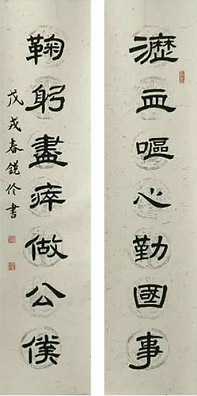 瀝血嘔心勤國事
鞠躬盡瘁做公僕
戊戌春鏡伶書